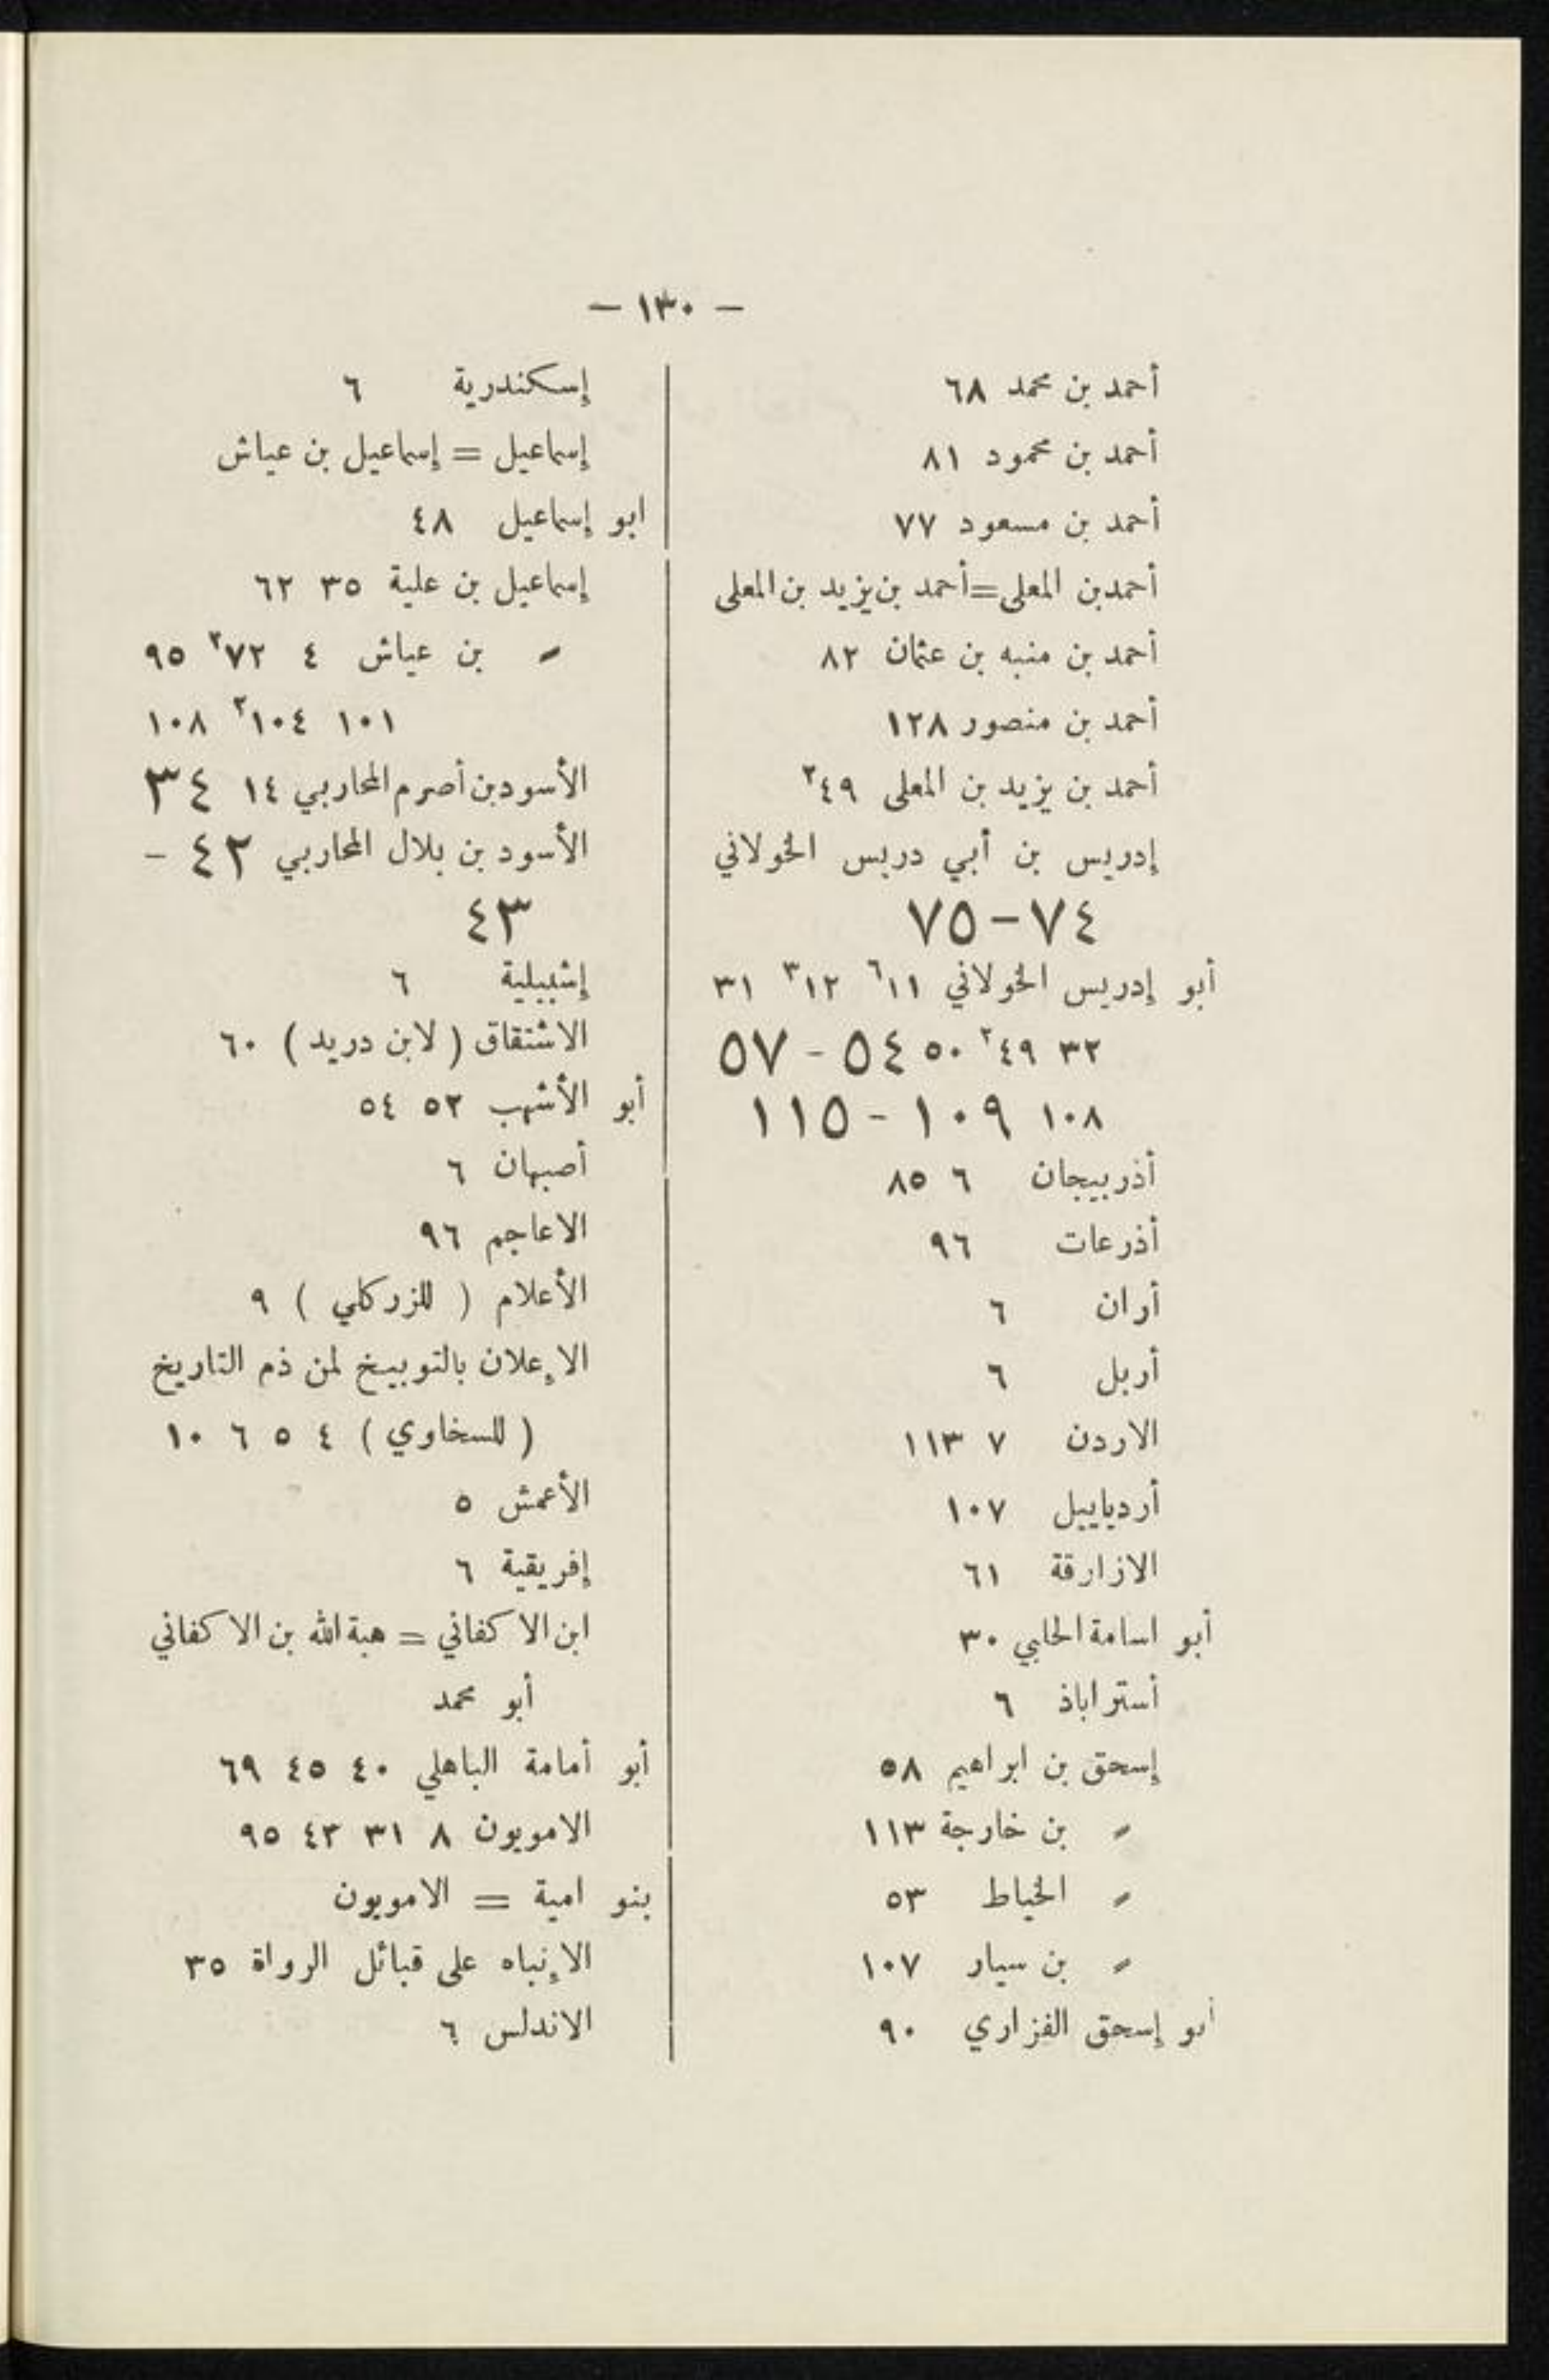 — ١٣٠ —
أحمد بن محمد ٦٨
أحمد بن محمود ٨١
أحمد بن مسعود ٧٧
أحمدبن المعلى=أحمد بن يزيد بن المعلى
أحمد بن منبه بن عثمان ٨٢
أحمد بن منصور ١٢٨
أحمد بن يزيد بن المعلى ٤٩²
إدريس بن أبي دريس الخولاني
٧٤-٧٥
أبو إدريس الخولاني ١١⁶ ١٢³ ٣١
٣٢ ٤٩² ٥٠ ٥٤ - ٥٧
١٠٨ ١٠٩ - ١١٥
أذربيجان ٦ ٨٥
أذرعات ٩٦
أران ٦
أربل ٦
الاردن ٧ ١١٣
أردياييل ١٠٧
الازارقة ٦١
أبو اسامة الحلبي ٣٠
أستراباذ ٦
إسحق بن ابراهيم ٥٨
〃 بن خارجة ١١٣
〃 الخياط ٥٣
〃 بن سيار ١٠٧
أبو إسحق الفزاري ٩٠
إسكندرية ٦
إسماعيل = إسماعيل بن عياش
ابو إسماعيل ٤٨
إسماعيل بن علية ٣٥ ٦٢
〃 بن عياش ٤ ٧٢² ٩٥
١٠١ ١٠٤² ١٠٨
الأسودبن أصرم المحاربي ١٤ ٣٤
الأسود بن بلال المحاربي ٤٢ -
٤٣
إشبيلية ٦
الاشتقاق ( لابن دريد ) ٦٠
أبو الأشهب ٥٢ ٥٤
أصبهان ٦
الاعاجم ٩٦
الأعلام ( للزركلي ) ٩
الإعلان بالتوبيخ لمن ذم التاريخ
( للسخاوي ) ٤ ٥ ٦ ١٠
الأعمش ٥
إفريقية ٦
ابن الاكفاني = هبة الله بن الاكفاني
أبو محمد
أبو أمامة الباهلي ٤٠ ٤٥ ٦٩
الامويون ٨ ٣١ ٤٢ ٩٥
بنو امية = الامويون
الإنباه على قبائل الرواة ٣٥
الاندلس ٦